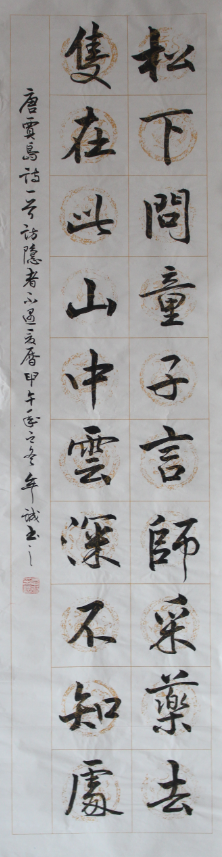 松下問童子言師采藥去
隻在此山中雲深不知處
唐賈島詩一首訪隐者不遇夏曆甲午年之冬年誠书之